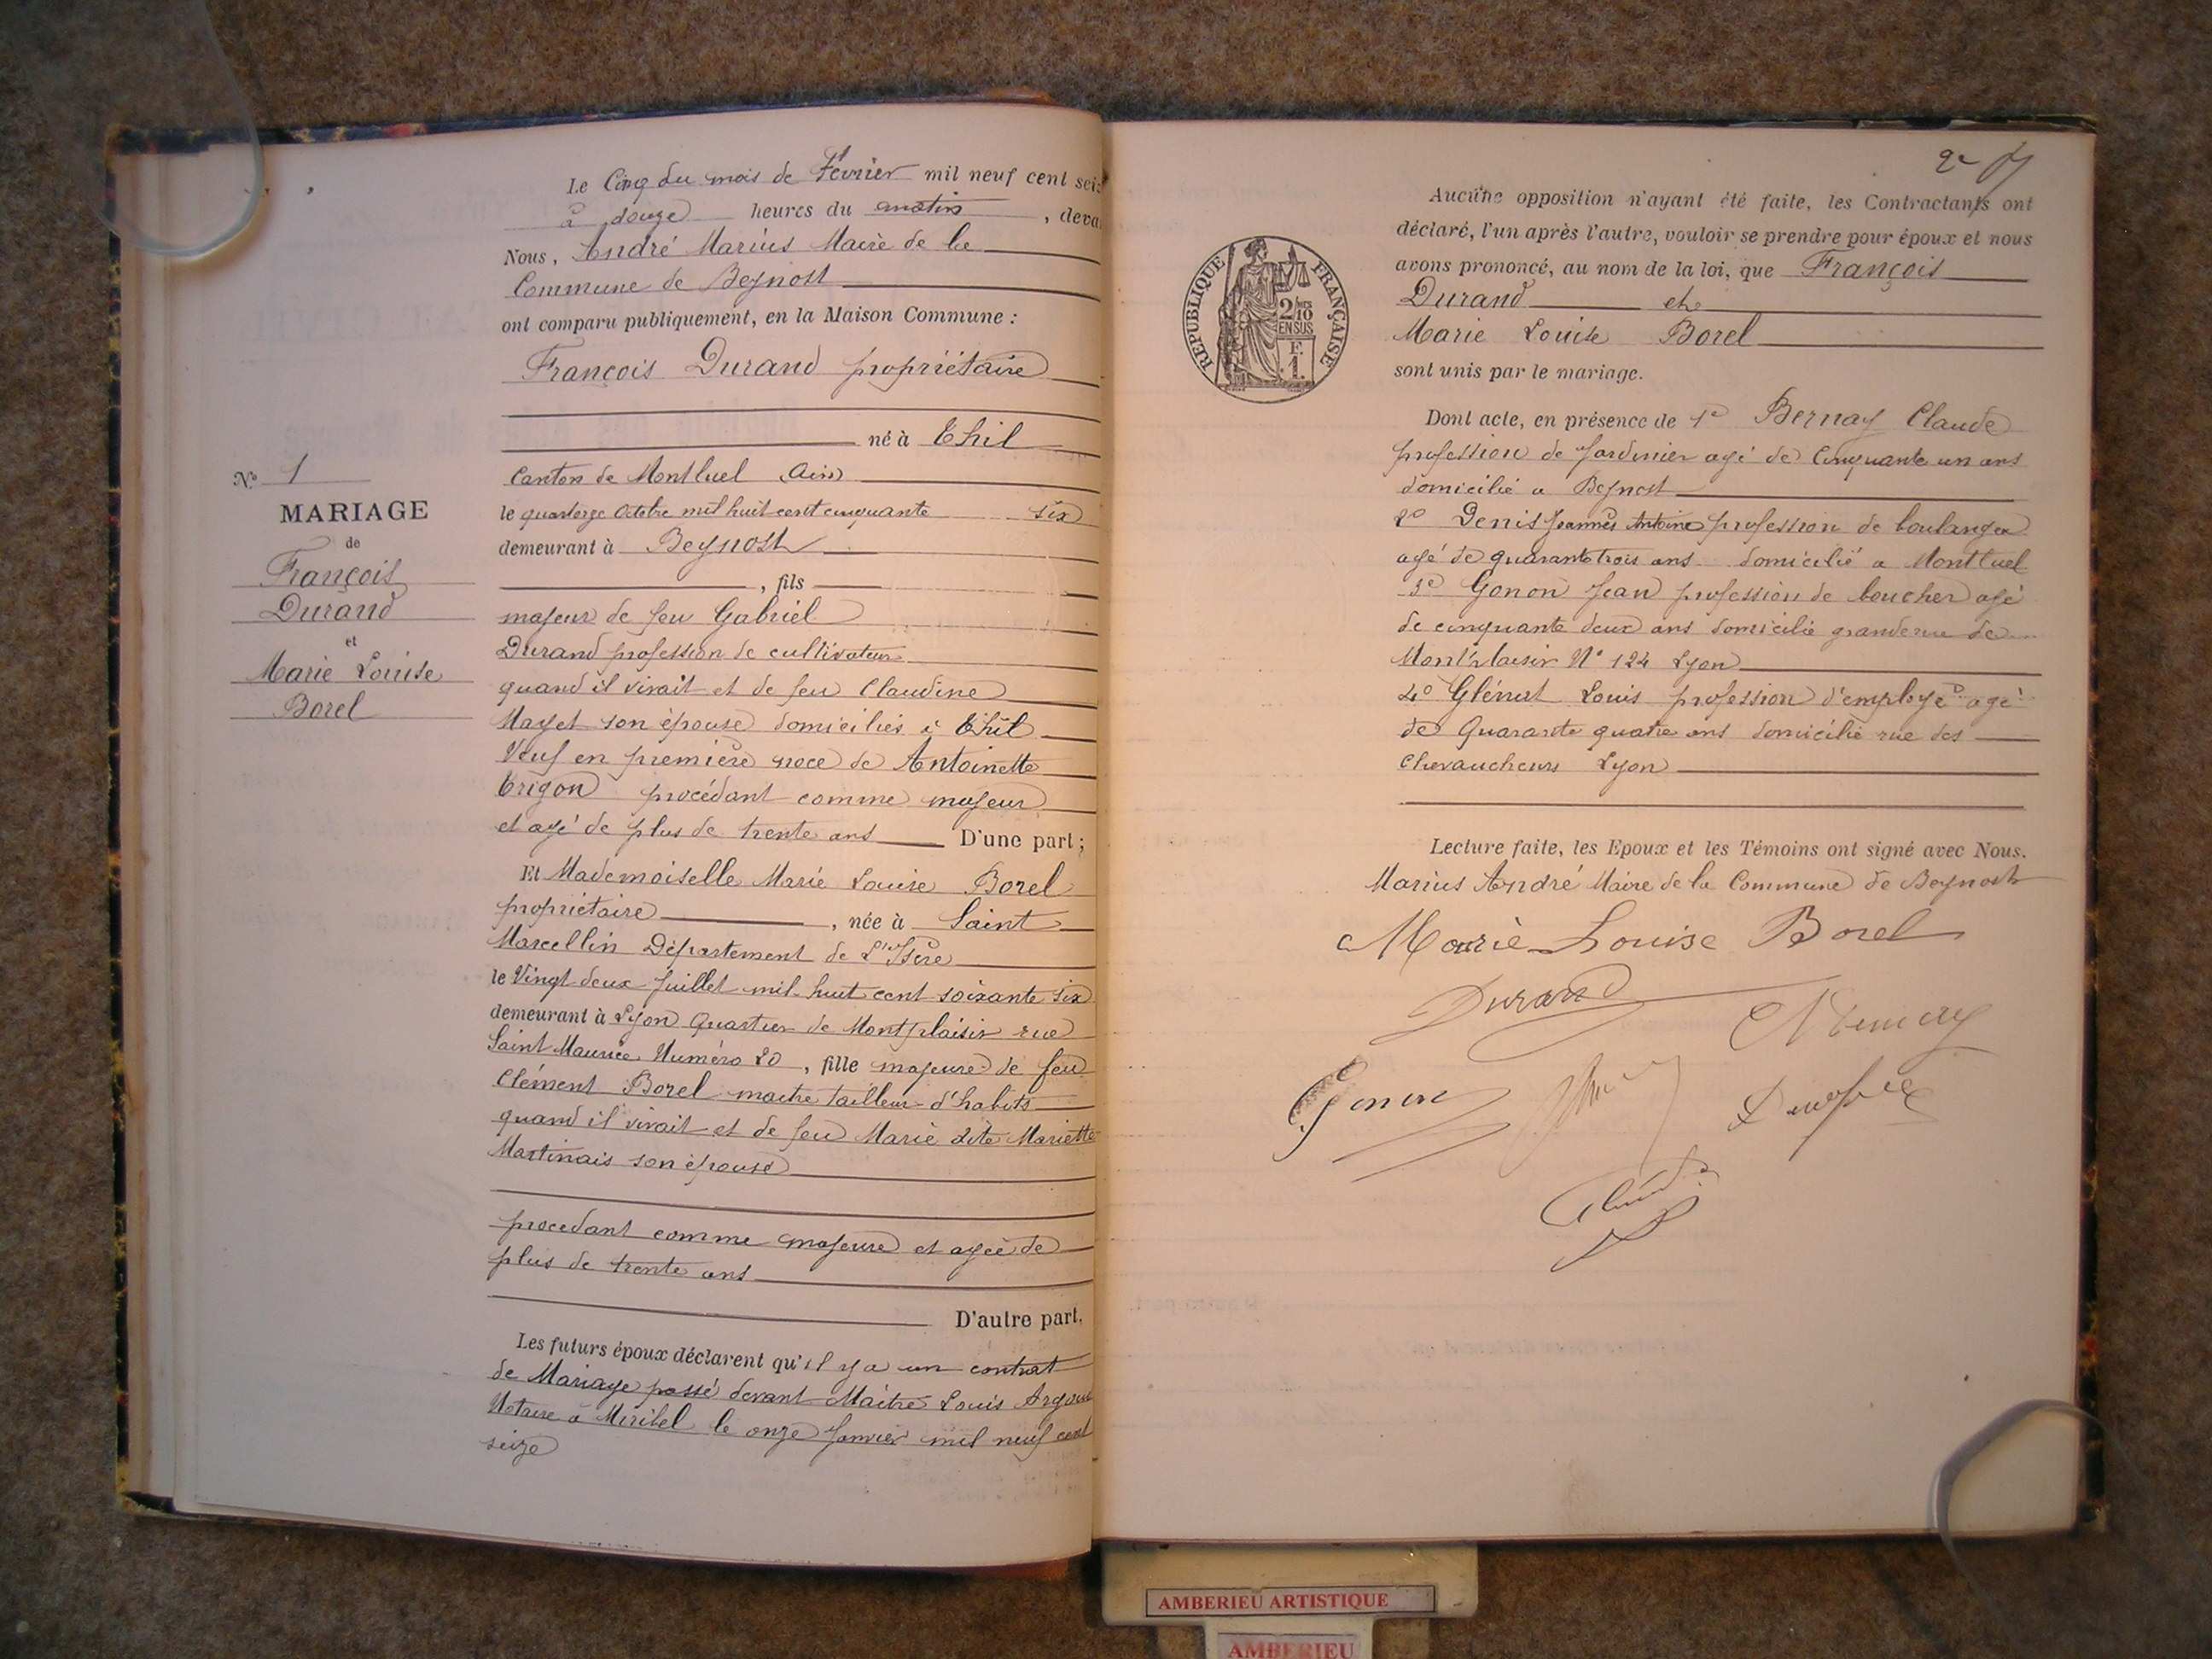 Le Cinq du mois de Février mil neuf cent seiz
à douze heures du matin, deva
Nous, André Marius Maire de la
Commune de Beynost
ont comparu publiquement, en la Maison Commune :
François Durand propriétaire
né à Thil
Canton de Montluel (Ain)
le quatorze Octobre mil huit cent cinquante six
demeurant à Beynost
, fils
majeur de feu Gabriel
Durand profession de cultivateur
quand il vivait et de feu Claudine
Mayet son épouse domiciliés à Thil
Veuf en première noce de Antoinette
Trigon procédant comme majeur
et agé de plus de trente ans D'une part ;
Et Mademoiselle Marie Louise Borel
propriétaire, née à Saint
Marcellin Département de L'Isère
le Vingt deux Juillet mil huit cent soixante six
demeurant à Lyon Quartier de Montplaisir rue
Saint Maurice Numéro 20, fille majeure de feu
Clément Borel maitre tailleur d'habits
quand il vivait et de feu Marie dite Mariette
Martinais son épouse
procedant comme majeure et agée de
plus de trente ans
D'autre part.
Les futurs époux déclarent qu'il y a un contrat
de Mariage passé devant Maître Louis
Notaire à Miribel le onze Janvier mil neuf cent
seize
N° 1
MARIAGE
de
François
Durand
et
Marie Louise
Borel
REPUBLIQUE FRANÇAISE
2/10
EN SUS
F.
1.
Aucune opposition n'ayant été faite, les Contractants ont
déclaré, l'un après l'autre, vouloir se prendre pour époux et nous
avons prononcé, au nom de la loi, que François
Durand et
Marie Louise Borel
sont unis par le mariage.
Dont acte, en présence de 1° Bernay Claude
profession de Jardinier agé de Cinquante un ans
domicilié a Beynost
2° Denis Joannès Antoine profession de boulanger
agé de quarante trois ans domicilié a Montluel
3° Gonon Jean profession de boucher agé
de cinquante deux ans domicilié grande rue de
Montplaisir N° 124 Lyon
4° Glénat Louis profession d'employé agé
de Quarante quatre ans domicilié rue des
Chevaucheurs Lyon
Lecture faite, les Epoux et les Témoins ont signé avec Nous.
Marius André Maire de la Commune de Beynost
Marie Louise Borel
Durand
Gonon
AMBERIEU ARTISTIQUE
AMBERIEU